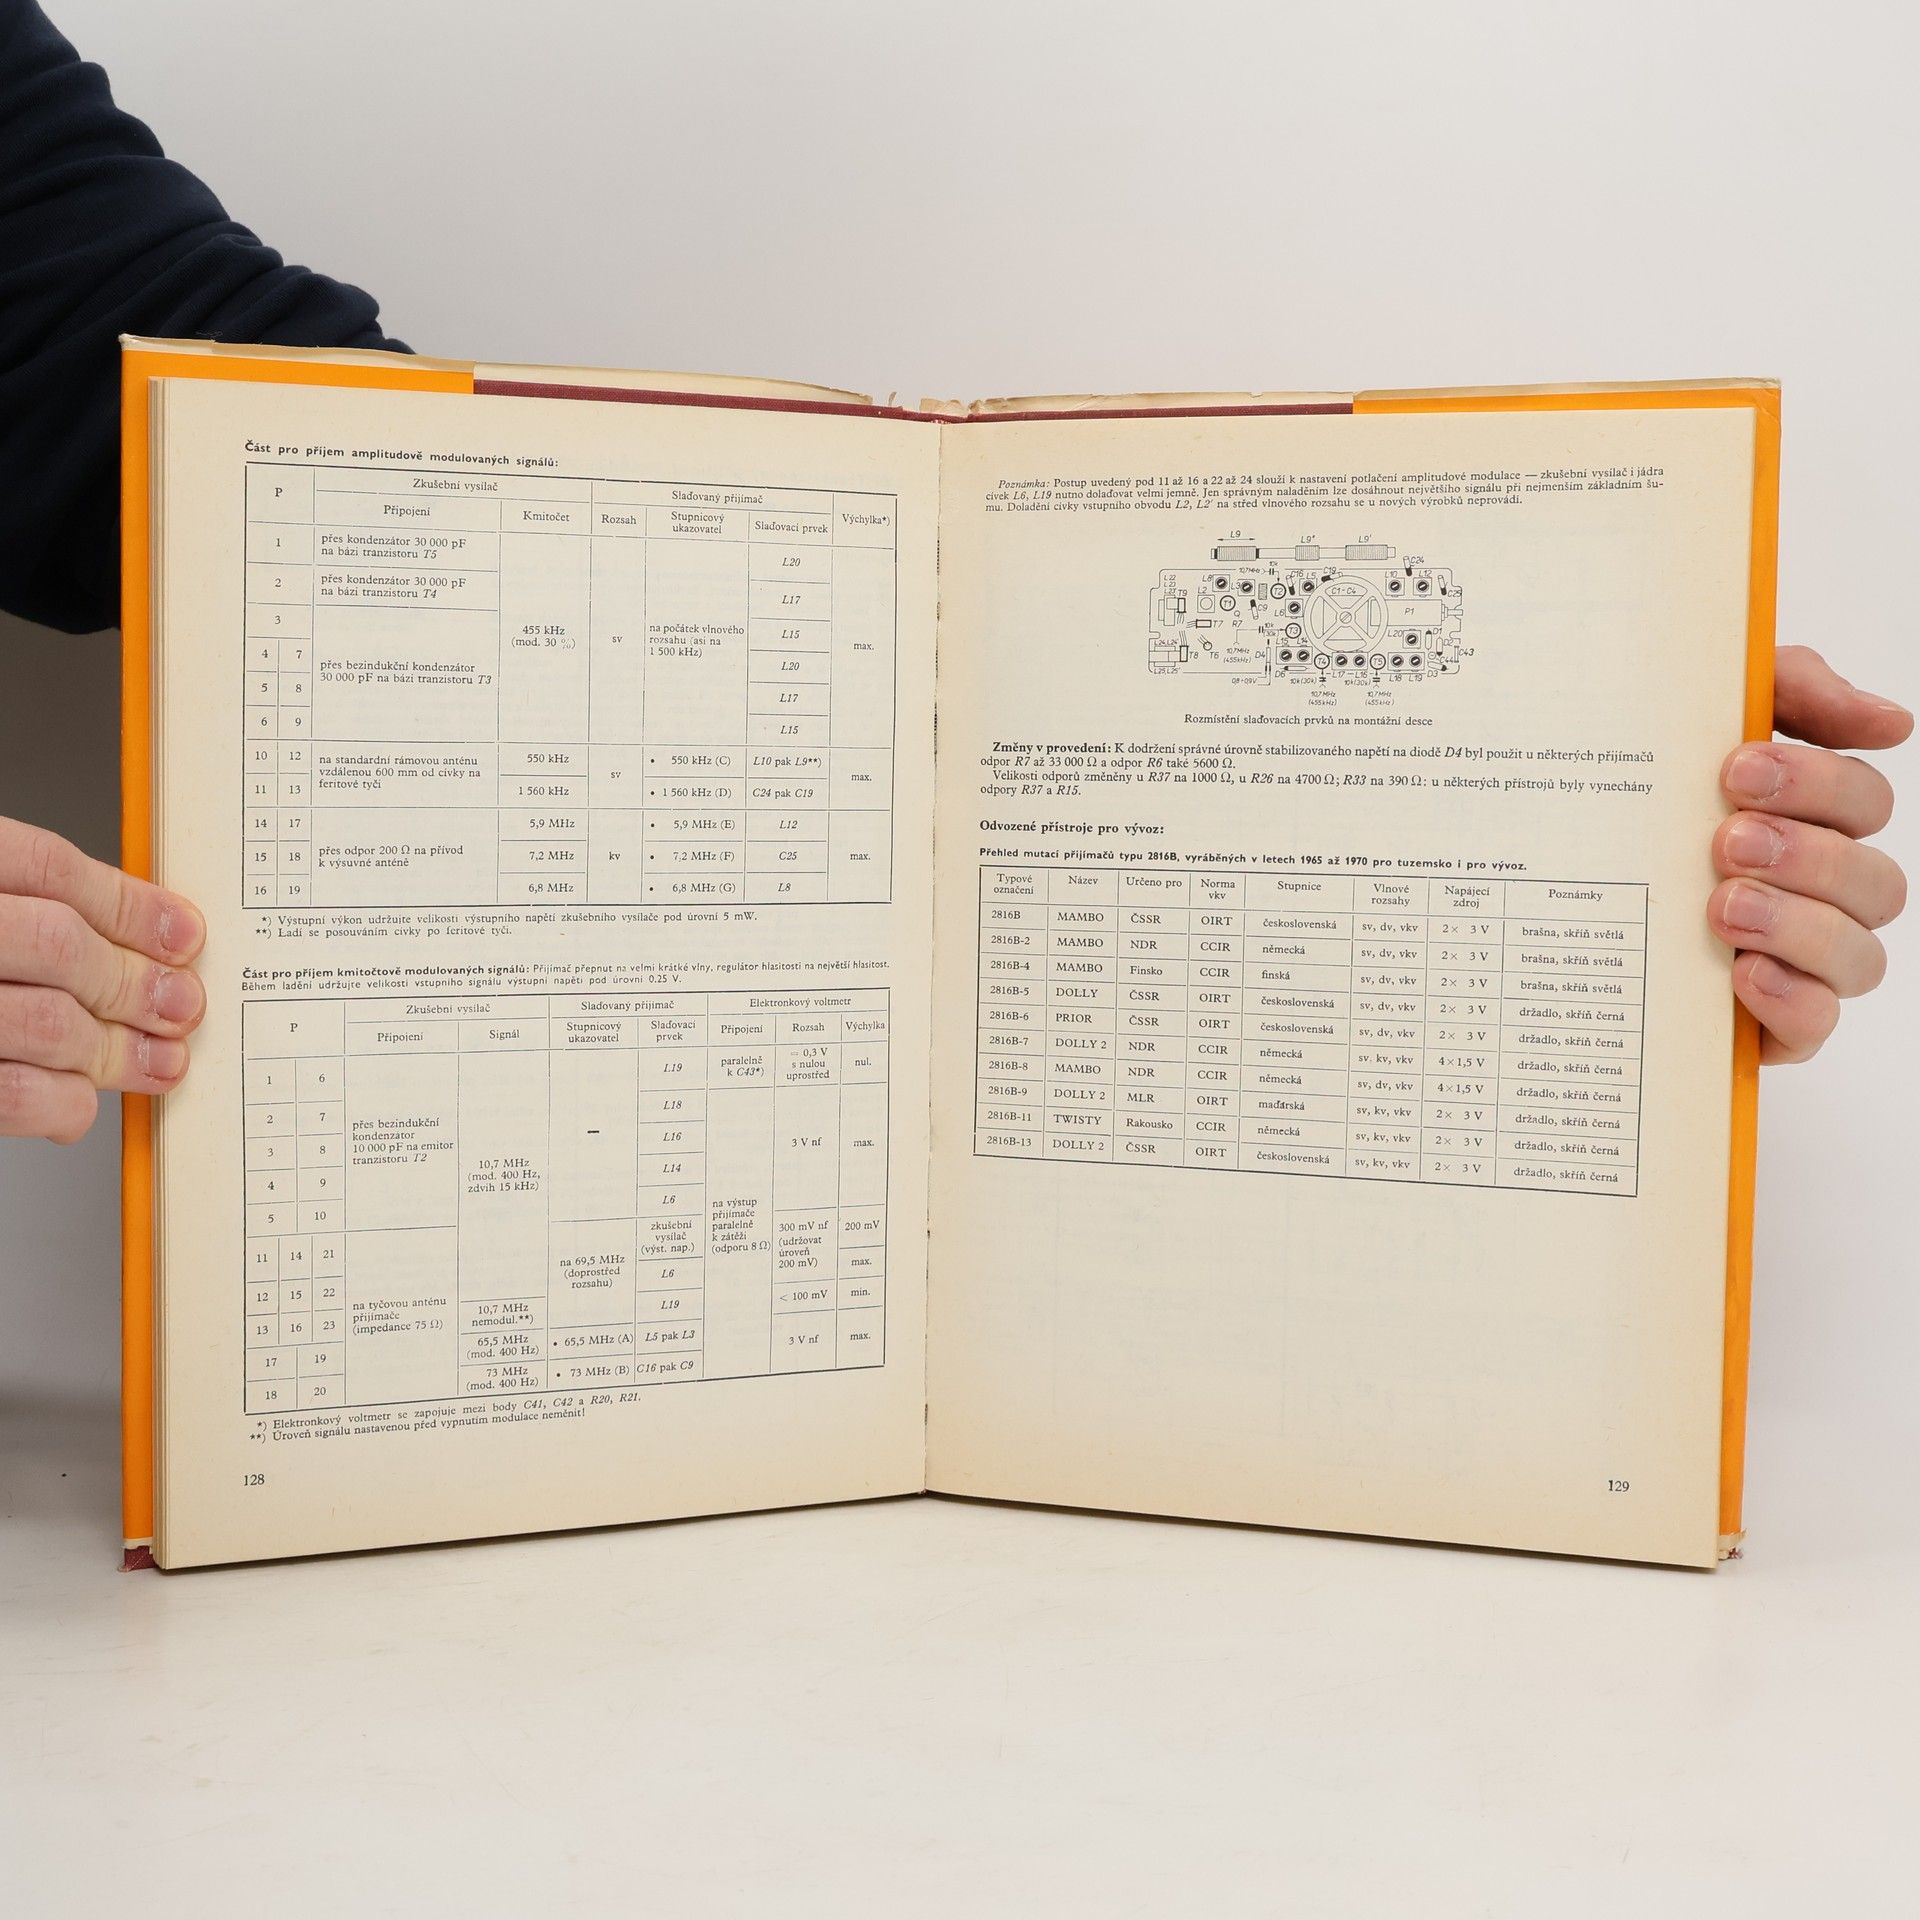 Část pro příjem amplitudově modulovaných signálů:
P
Zkušební vysílač
Slaďovaný přijímač
Výchylka*)
Připojení
Kmitočet
Rozsah
Stupnicový
ukazovatel
Slaďovací prvek
1
přes kondenzátor 30 000 pF
na bázi tranzistoru T5
455 kHz
(mod. 30 %)
sv
na počátek vlnového
rozsahu (asi na
1 500 kHz)
L20
max.
2
přes kondenzátor 30 000 pF
na bázi tranzistoru T4
L17
3
přes bezindukční kondenzátor
30 000 pF na bázi tranzistoru T3
L15
4 7
L20
5 8
L17
6 9
L15
10 12
na standardní rámovou anténu
vzdálenou 600 mm od cívky na
feritové tyči
550 kHz
sv
• 550 kHz (C)
L10 pak L9**)
max.
11 13
1 560 kHz
• 1 560 kHz (D)
C24 pak C19
14 17
přes odpor 200 Ω na přívod
k výsuvné anténě
5,9 MHz
kv
• 5,9 MHz (E)
L12
max.
15 18
7,2 MHz
• 7,2 MHz (F)
C25
16 19
6,8 MHz
• 6,8 MHz (G)
L8
*) Výstupní výkon udržujte velikostí výstupního napětí zkušebního vysílače pod úrovní 5 mW.
**) Ladí se posouváním cívky po feritové tyči.
Část pro příjem kmitočtově modulovaných signálů: Přijímač přepnut na velmi krátké vlny, regulátor hlasitosti na největší hlasitost.
Během ladění udržujte velikostí vstupního signálu výstupní napětí pod úrovní 0,25 V.
P
Zkušební vysílač
Slaďovaný přijímač
Elektronkový voltmetr
Připojení
Signál
Stupnicový
ukazovatel
Slaďovací
prvek
Připojení
Rozsah
Výchylka
1 6
přes bezindukční
kondenzátor
10 000 pF na emitor
tranzistoru T2
10,7 MHz
(mod. 400 Hz,
zdvih 15 kHz)
–
L19
paralelně
k C43*)
= 0,3 V
s nulou
uprostřed
nul.
2 7
L18
na výstup
přijímače
paralelně
k zátěži
(odporu 8 Ω)
3 V nf
max.
3 8
L16
4 9
L14
5 10
L6
11 14 21
na tyčovou anténu
přijímače
(impedance 75 Ω)
na 69,5 MHz
(doprostřed
rozsahu)
zkušební
vysílač
(výst. nap.)
300 mV nf
(udržovat
úroveň
200 mV)
200 mV
12 15 22
L6
max.
13 16 23
10,7 MHz
nemodul.**)
L19
< 100 mV
min.
17 19
65,5 MHz
(mod. 400 Hz)
• 65,5 MHz (A)
L5 pak L3
3 V nf
max.
18 20
73 MHz
(mod. 400 Hz)
• 73 MHz (B)
C16 pak C9
*) Elektronkový voltmetr se zapojuje mezi body C41, C42 a R20, R21.
**) Úroveň signálu nastavenou před vypnutím modulace neměnit!
128
Poznámka: Postup uvedený pod 11 až 16 a 22 až 24 slouží k nastavení potlačení amplitudové modulace — zkušební vysílač i jádra
cívek L6, L19 nutno dolaďovat velmi jemně. Jen správným naladěním lze dosáhnout největšího signálu při nejmenším základním šu-
mu. Doladění cívky vstupního obvodu L2, L2' na střed vlnového rozsahu se u nových výrobků neprovádí.
L9 L9" L9'
C24
L22
L23
L23'
T9
L8
L2
L3
T1
10,7MHz
10k
T2
C16
L5
C19
C1-C4
L10
L12
C25
Q
C9
L6
P1
T7
R7
10k
(30k)
T3
L20
D1
D2
C43
L24,L24'
T8
T6
10,7MHz
(455kHz)
D4
L15
L14
T4
L17
L16
T5
L18
L19
D3
C44
L25,L25'
0,8÷0,9V
D6
10k(30k)
10k(30k)
10,7MHz
(455kHz)
10,7MHz
(455kHz)
Rozmístění slaďovacích prvků na montážní desce
Změny v provedení: K dodržení správné úrovně stabilizovaného napětí na diodě D4 byl použit u některých přijímačů
odpor R7 až 33 000 Ω a odpor R6 také 5600 Ω.
Velikosti odporů změněny u R37 na 1000 Ω, u R26 na 4700 Ω; R33 na 390 Ω: u některých přístrojů byly vynechány
odpory R37 a R15.
Odvozené přístroje pro vývoz:
Přehled mutací přijímačů typu 2816B, vyráběných v letech 1965 až 1970 pro tuzemsko i pro vývoz.
Typové
označení
Název
Určeno pro
Norma
vkv
Stupnice
Vlnové
rozsahy
Napájecí
zdroj
Poznámky
2816B MAMBO ČSSR OIRT československá sv, dv, vkv 2× 3 V brašna, skříň světlá
2816B-2 MAMBO NDR CCIR německá sv, dv, vkv 2× 3 V brašna, skříň světlá
2816B-4 MAMBO Finsko CCIR finská sv, dv, vkv 2× 3 V brašna, skříň světlá
2816B-5 DOLLY ČSSR OIRT československá sv, dv, vkv 2× 3 V držadlo, skříň černá
2816B-6 PRIOR ČSSR OIRT československá sv, dv, vkv 2× 3 V držadlo, skříň černá
2816B-7 DOLLY 2 NDR CCIR německá sv. kv, vkv 4×1,5 V držadlo, skříň černá
2816B-8 MAMBO NDR CCIR německá sv, dv, vkv 4×1,5 V držadlo, skříň černá
2816B-9 DOLLY 2 MLR OIRT maďarská sv, kv, vkv 2× 3 V držadlo, skříň černá
2816B-11 TWISTY Rakousko CCIR německá sv, kv, vkv 2× 3 V držadlo, skříň černá
2816B-13 DOLLY 2 ČSSR OIRT československá sv, kv, vkv 2× 3 V držadlo, skříň černá
129